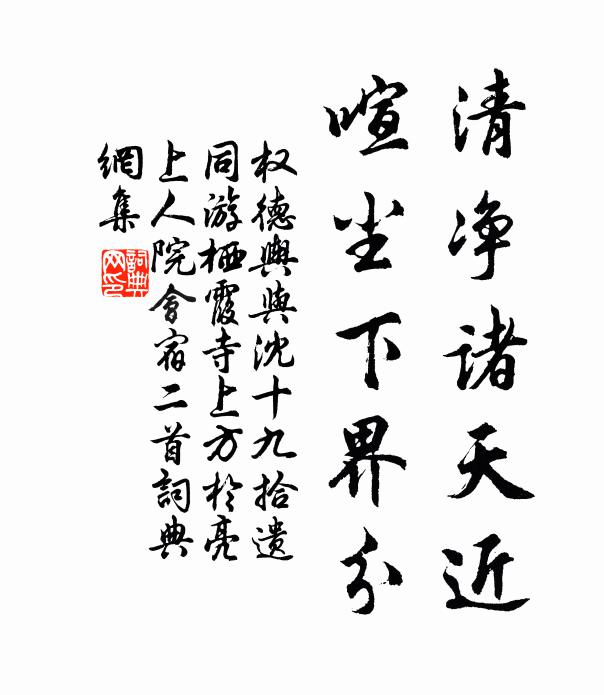 清净诸天近
喧尘下界分
权德舆与沈十九拾遗
同游栖霞寺上方于亮
上人院会宿二首词典
網集
詞典網印